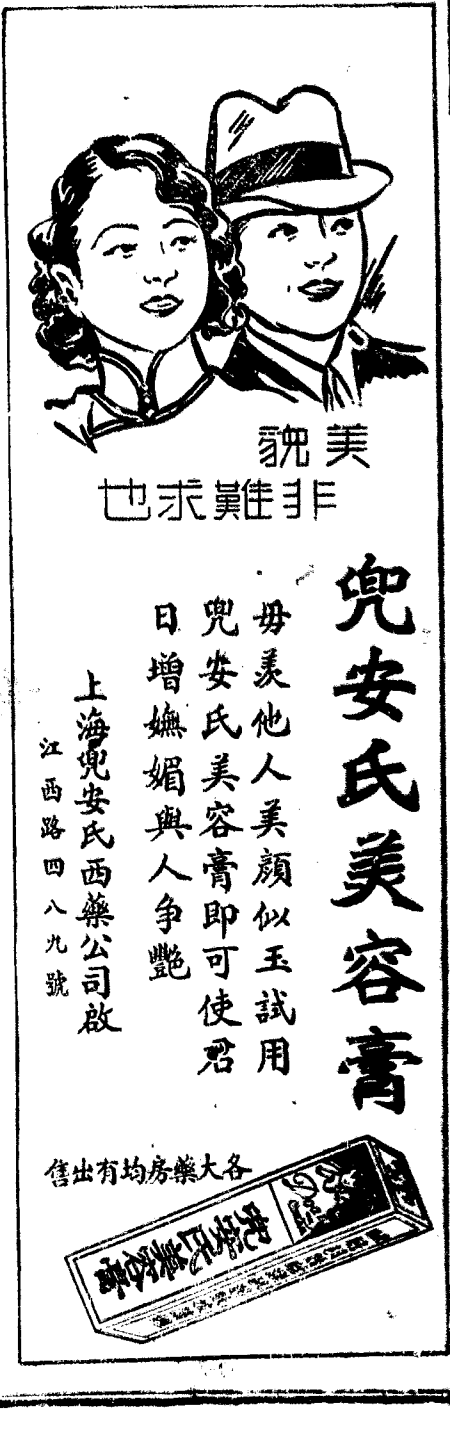 美貌
非難求也
兜安氏美容膏
毋羨他人美顔似玉試用
兜安氏美容膏即可使君
日增嫵媚與人争艷
上海兜安氏西藥公司啟
江西路四八九號
各大藥房均有出售
兜安氏美容膏